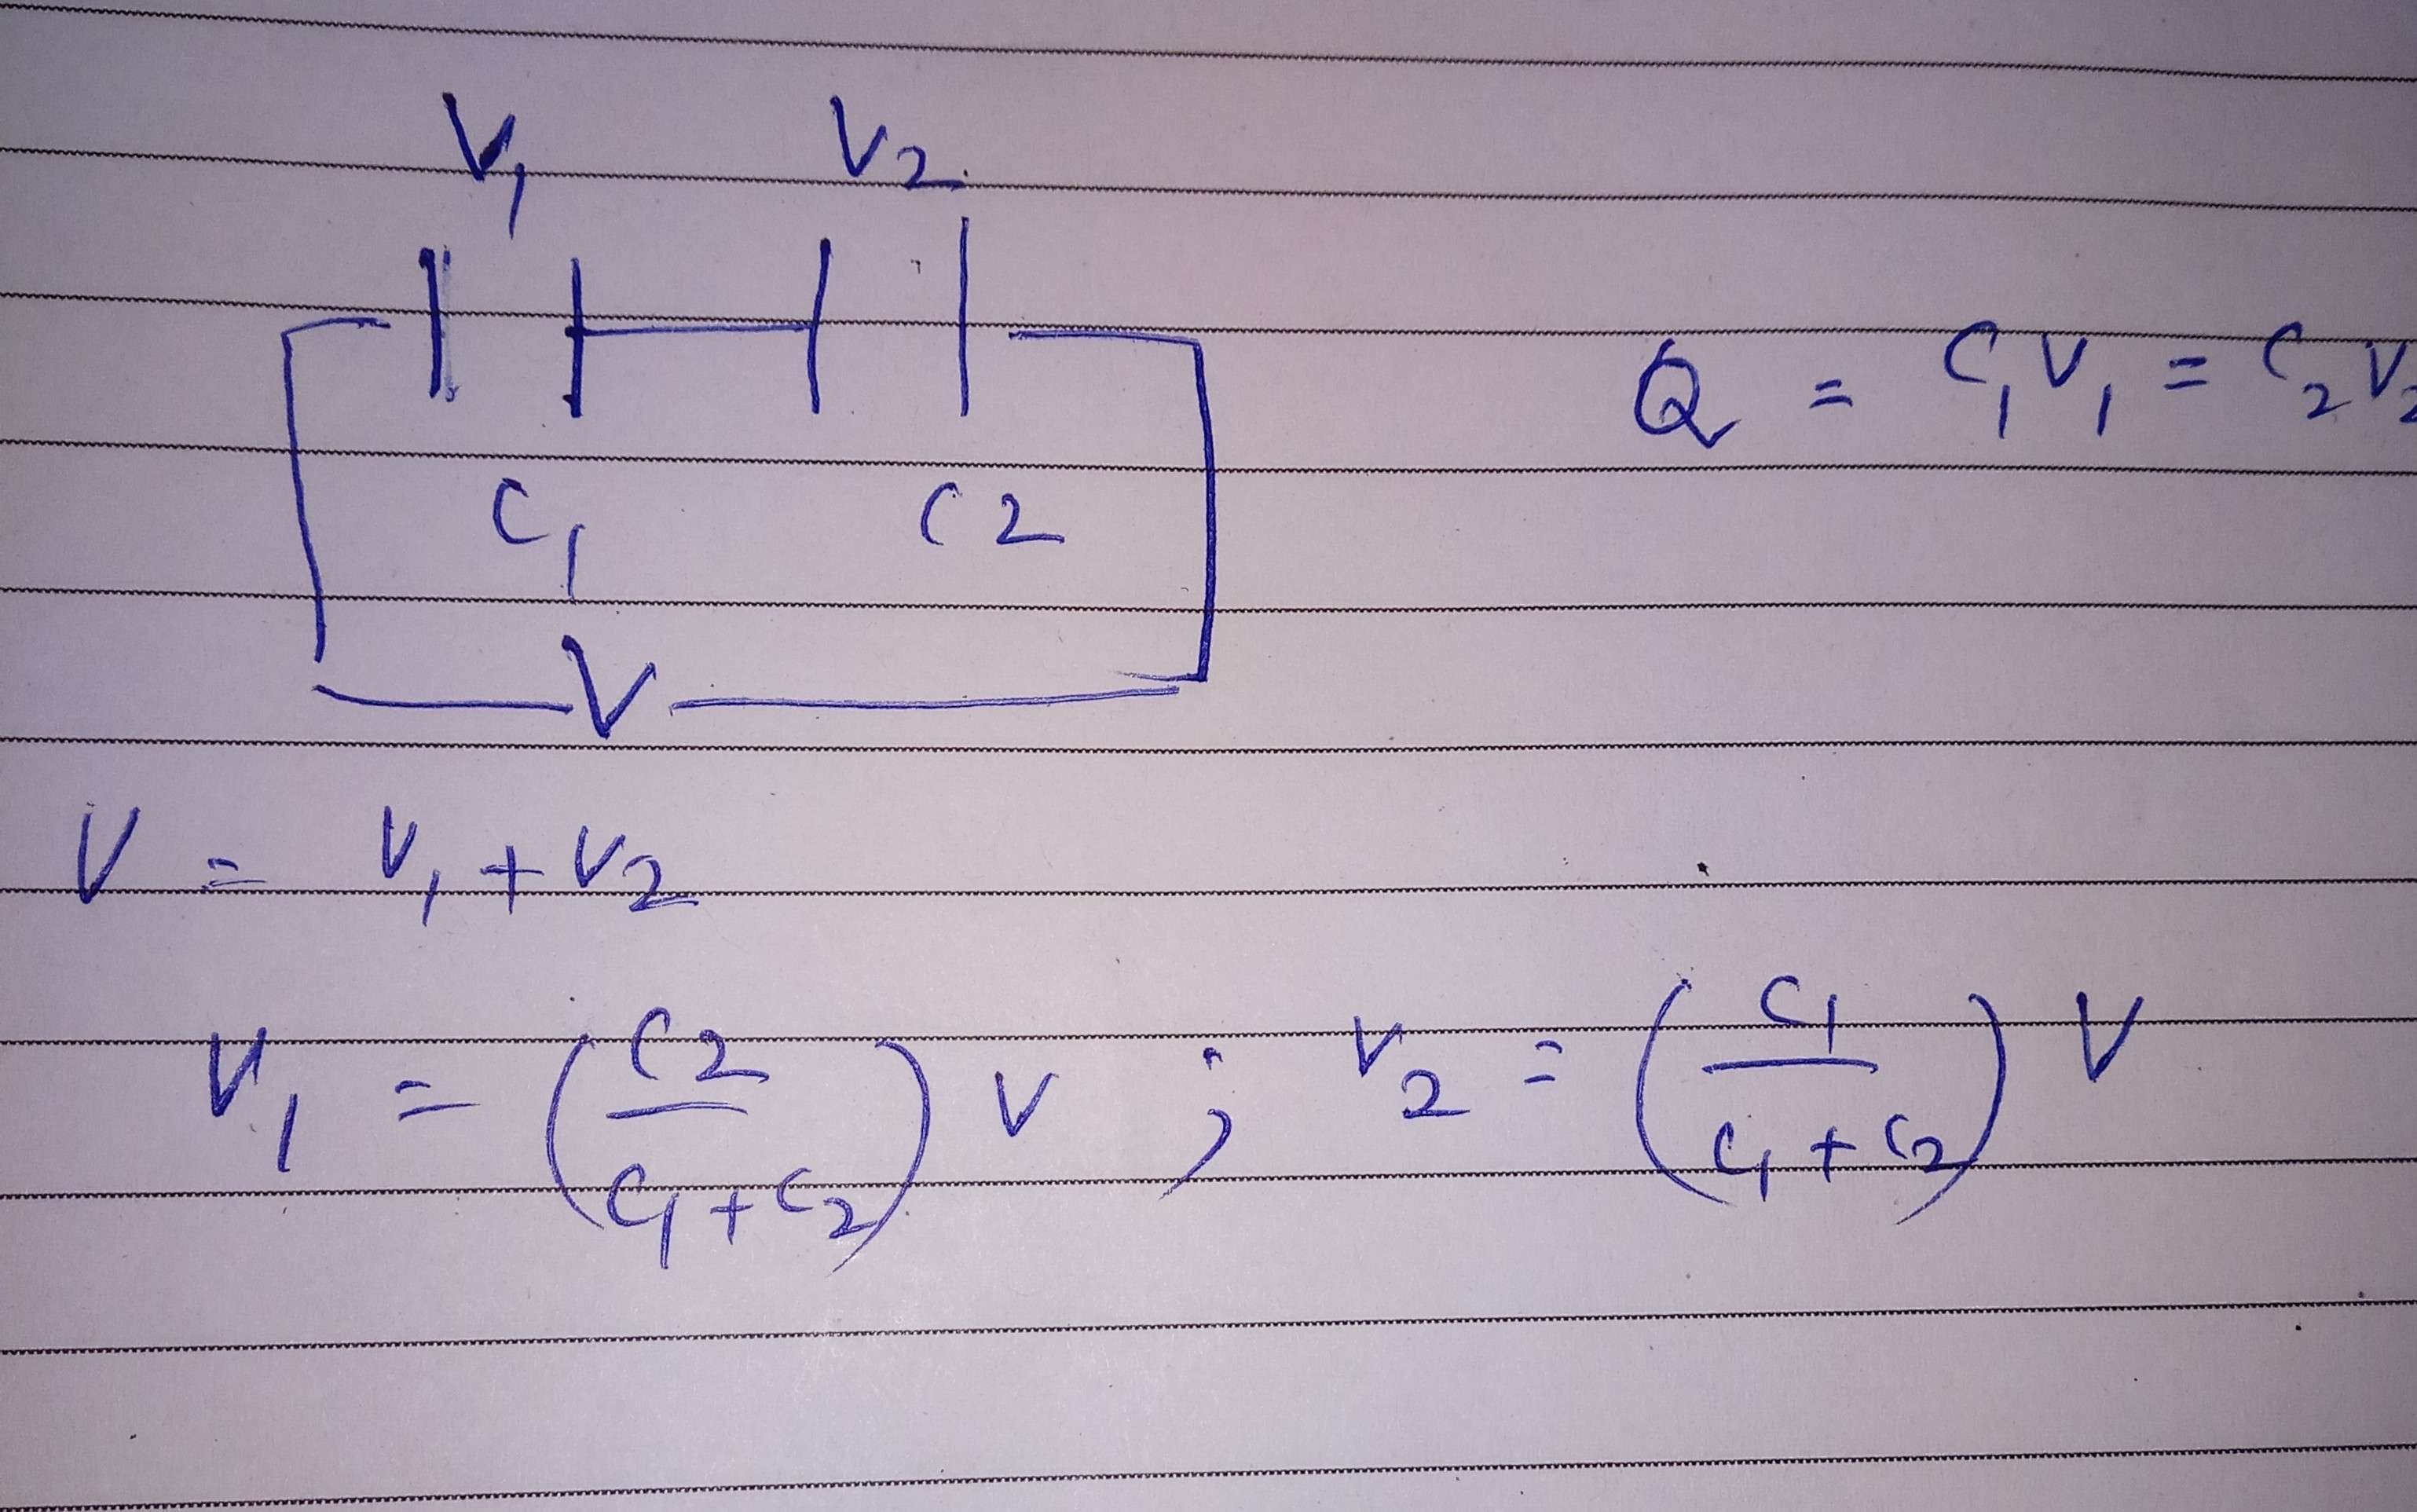 V₁ V₂
Q = C₁V₁ = C₂V₂
C₁ C2
V
V = V₁ + V₂
V₁ = (C2 / C₁ + C₂) V ; V₂ = (C₁ / C₁ + C₂) V